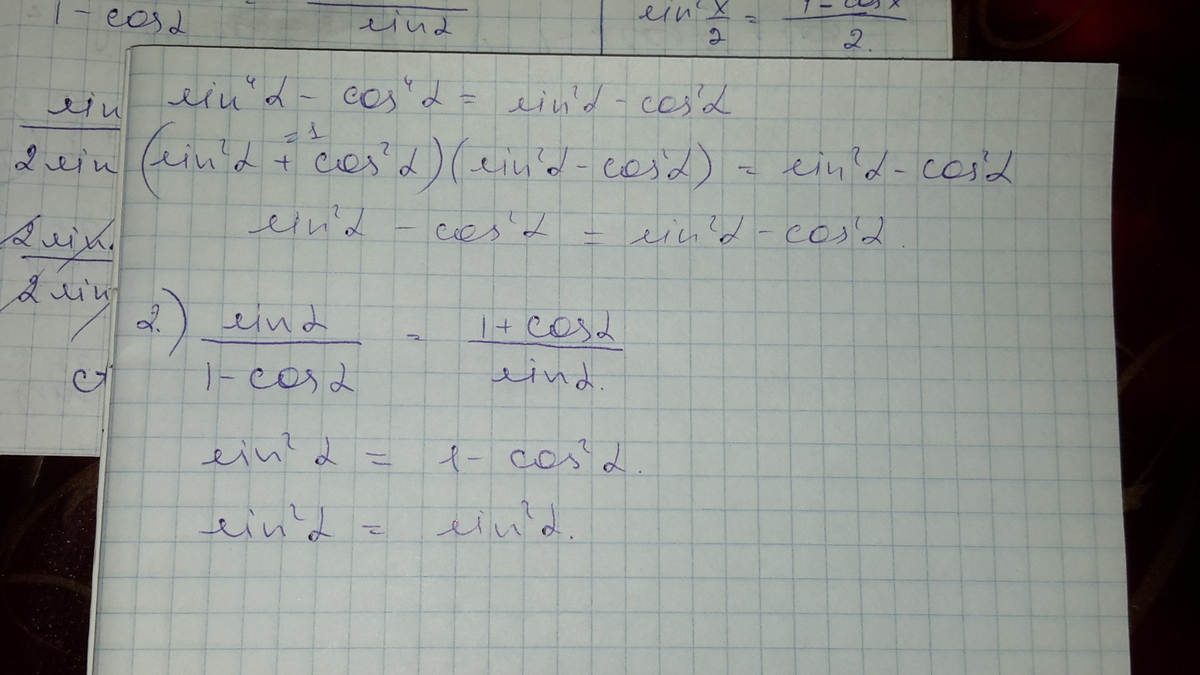 1 - cosα   sinα
sin² x/2 = (1 - cosx)/2.
sin
2 sin
2 sin
2 sin
sin⁴α - cos⁴α = sin²α - cos²α
=1
(sin²α + cos²α)(sin²α - cos²α) = sin²α - cos²α
sin²α - cos²α = sin²α - cos²α.
2.) sinα/(1 - cosα) = (1 + cosα)/sinα.
sin²α = 1 - cos²α.
sin²α = sin²α.